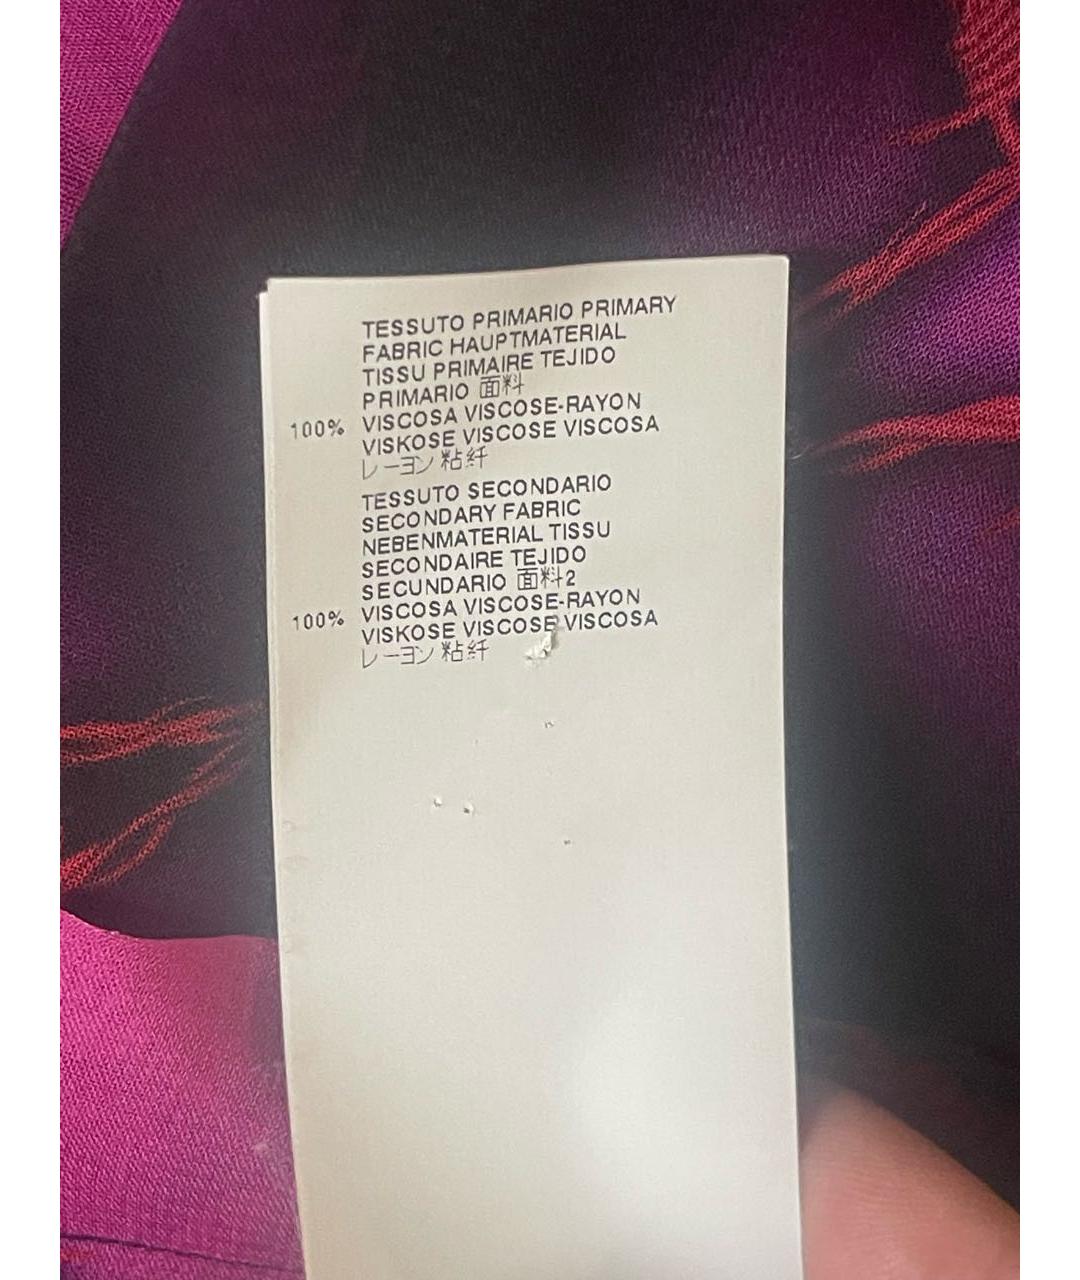 TESSUTO PRIMARIO PRIMARY
FABRIC HAUPTMATERIAL
TISSU PRIMAIRE TEJIDO
PRIMARIO 面料
100% VISCOSA VISCOSE-RAYON
VISKOSE VISCOSE VISCOSA
レーヨン 粘纤
TESSUTO SECONDARIO
SECONDARY FABRIC
NEBENMATERIAL TISSU
SECONDAIRE TEJIDO
SECUNDARIO 面料2
100% VISCOSA VISCOSE-RAYON
VISKOSE VISCOSE VISCOSA
レーヨン 粘纤